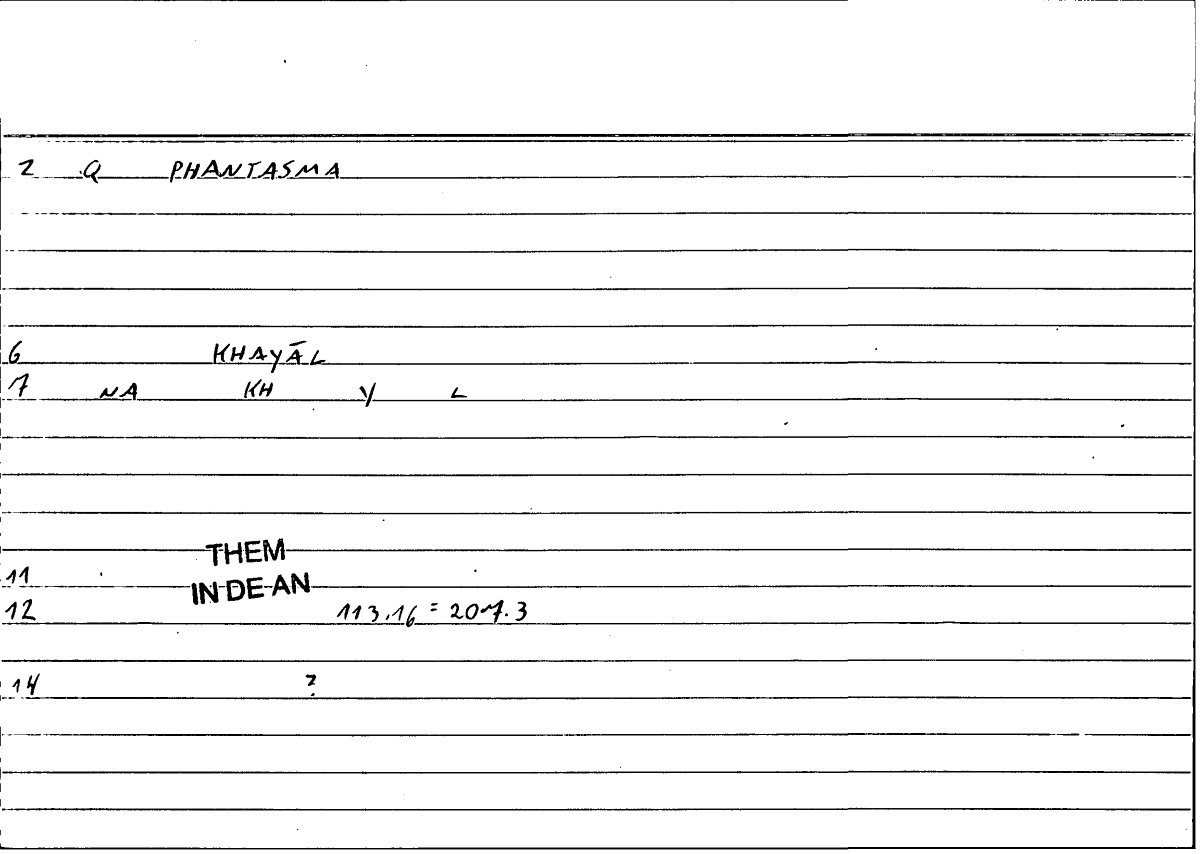 2 Q PHANTASMA
6 KHAYĀL
7 NA KH Y L
THEM
11
IN DE AN
12 113,16 = 207.3
14 ?